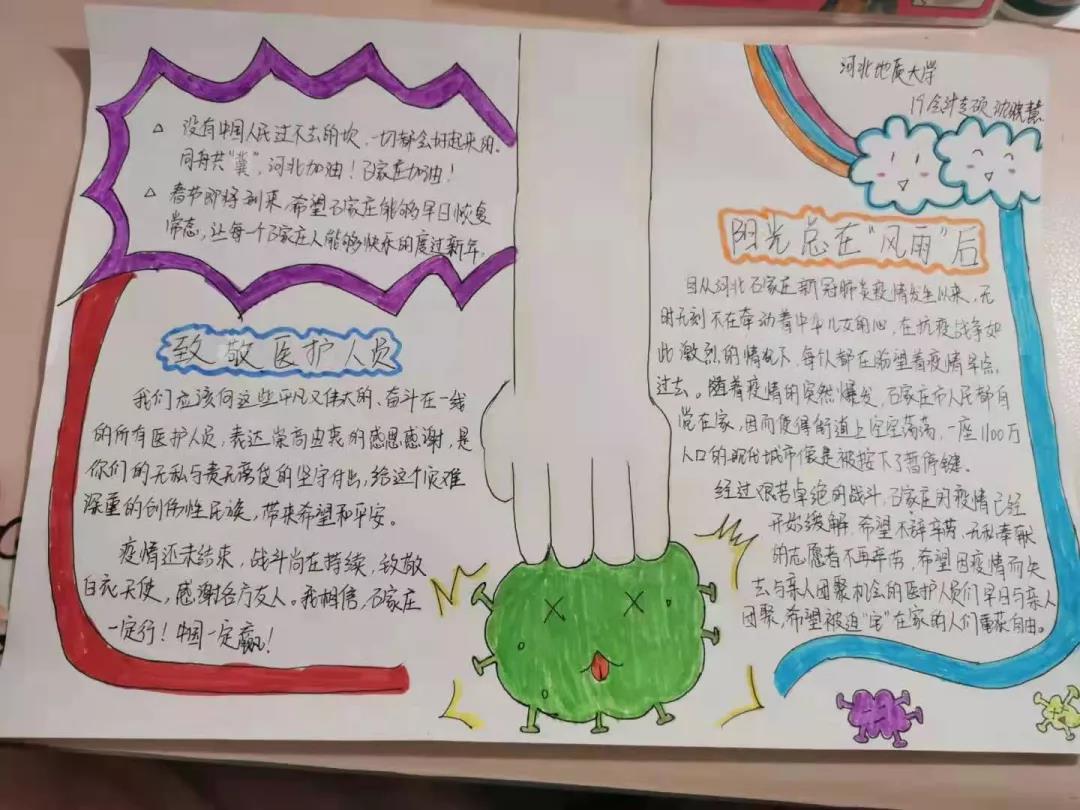 没有中国人民过不去的坎,一切都会好起来的。
同舟共"冀",河北加油!石家庄加油!
春节即将到来,希望石家庄能够早日恢复
常态,让每一个石家庄人能够快乐的度过新年。
致敬医护人员
我们应该向这些平凡又伟大的、奋斗在一线
的所有医护人员,表达崇高由衷的感恩感谢,是
你们的无私与责无旁贷的坚守付出,给这个灾难
深重的创伤性民族,带来希望和平安。
疫情还未结束,战斗尚在持续,致敬
白衣天使,感谢各方友人。我相信,石家庄
一定行!中国一定赢!
河北地质大学
19会计专硕 沈
阳光总在"风雨"后
自从河北石家庄新冠肺炎疫情发生以来,无
时无刻不在牵动着中华儿女的心,在抗疫战争如
此激烈的情况下,每人都在盼望着疫情早点
过去。随着疫情的突然爆发,石家庄市人民都自
觉在家,因而使得街道上空空荡荡,一座1100万
人口的现代城市像是被按下了暂停键。
经过艰苦卓绝的战斗,石家庄的疫情已经
开始缓解,希望不辞辛劳、无私奉献
的志愿者不再辛劳,希望因疫情而失
去与亲人团聚机会的医护人员们早日与亲人
团聚,希望被迫"宅"在家的人们重获自由。